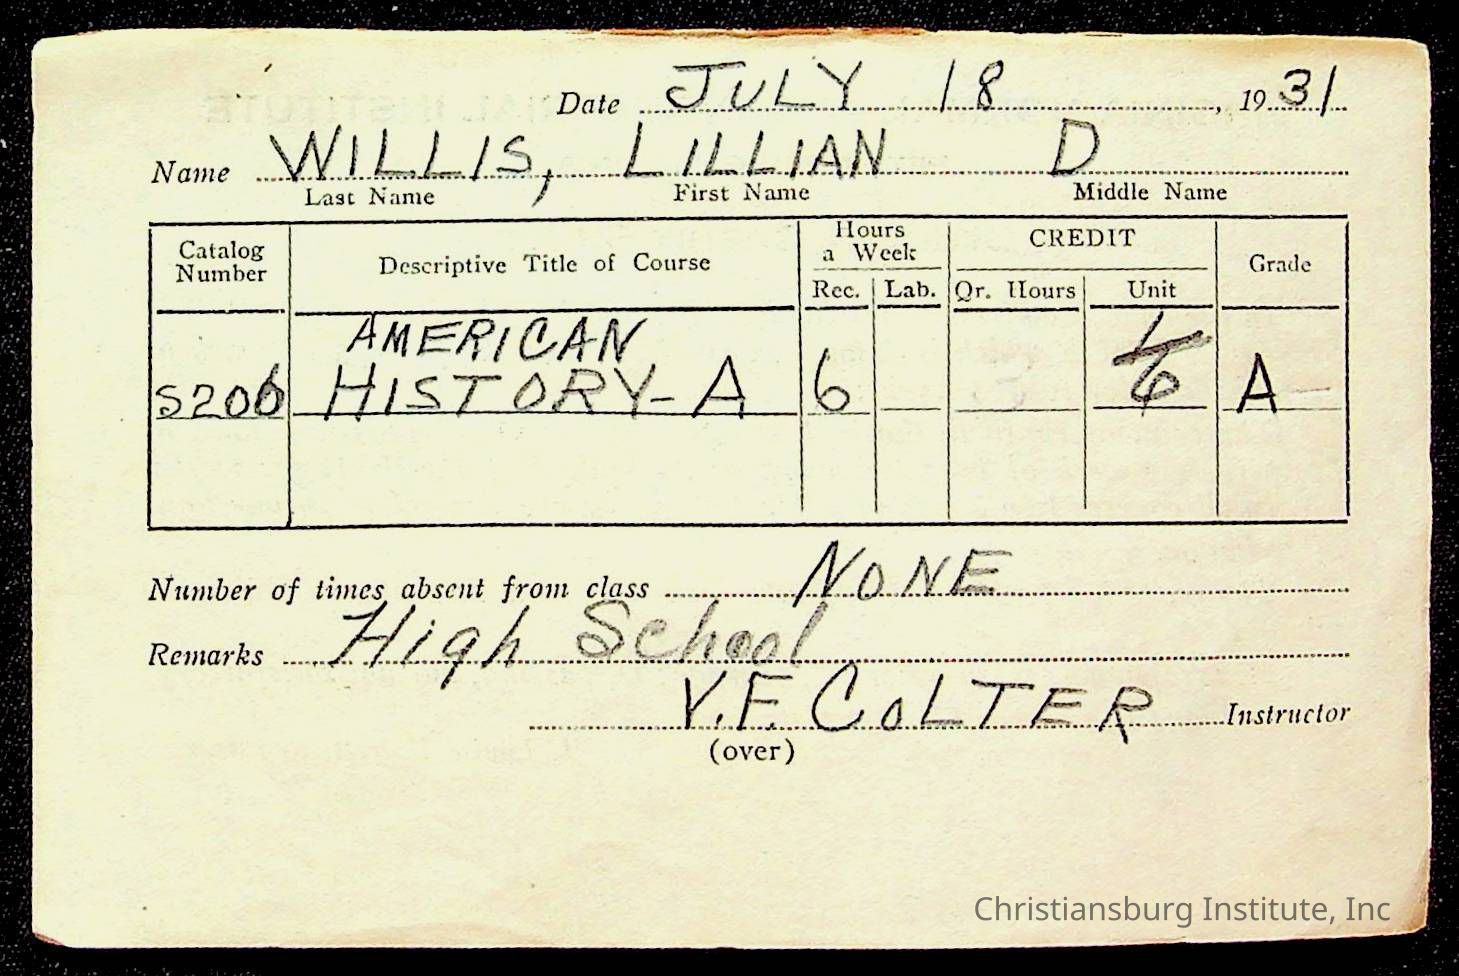 Date JULY 18, 1931
Name WILLIS, LILLIAN D
Last Name First Name Middle Name
Catalog Number Descriptive Title of Course Hours a Week CREDIT Grade
Rec. Lab. Qr. Hours Unit
AMERICAN
S206 HISTORY-A 6 1/6 A
Number of times absent from class NONE
Remarks High School
V.F. COLTER Instructor
(over)
Christiansburg Institute, Inc